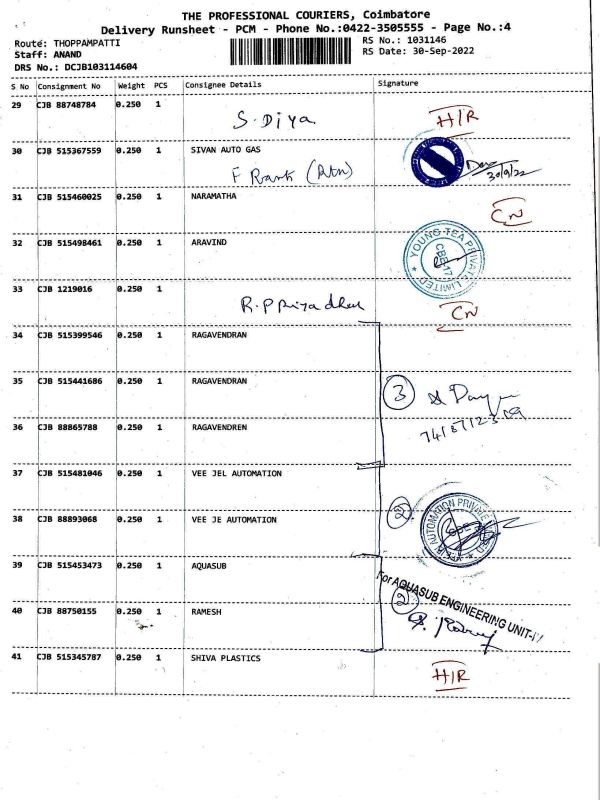 THE PROFESSIONAL COURIERS, Coimbatore
Delivery Runsheet - PCM - Phone No.:0422-3505555 - Page No.:4
Route: THOPPAMPATTI
RS No.: 1031146
Staff: ANAND
RS Date: 30-Sep-2022
DRS No.: DCJB103114604
S No Consignment No Weight PCS Consignee Details Signature
29 CJB 88748784 0.250 1
S. Diya H/R
30 CJB 515367559 0.250 1 SIVAN AUTO GAS
30/9/22
31 CJB 515460025 0.250 1 NARAMATHA
CN
32 CJB 515498461 0.250 1 ARAVIND
YOUNG TEA PRIVATE LIMITED
CBE-17
33 CJB 1219016 0.250 1
CN
34 CJB 515399546 0.250 1 RAGAVENDRAN
35 CJB 515441686 0.250 1 RAGAVENDRAN
3
36 CJB 88865788 0.250 1 RAGAVENDREN
37 CJB 515481046 0.250 1 VEE JEL AUTOMATION
2
AUTOMATION PRIVATE
38 CJB 88893068 0.250 1 VEE JE AUTOMATION
39 CJB 515453473 0.250 1 AQUASUB
For AQUASUB ENGINEERING UNIT-
2
40 CJB 88750155 0.250 1 RAMESH
41 CJB 515345787 0.250 1 SHIVA PLASTICS
H/R